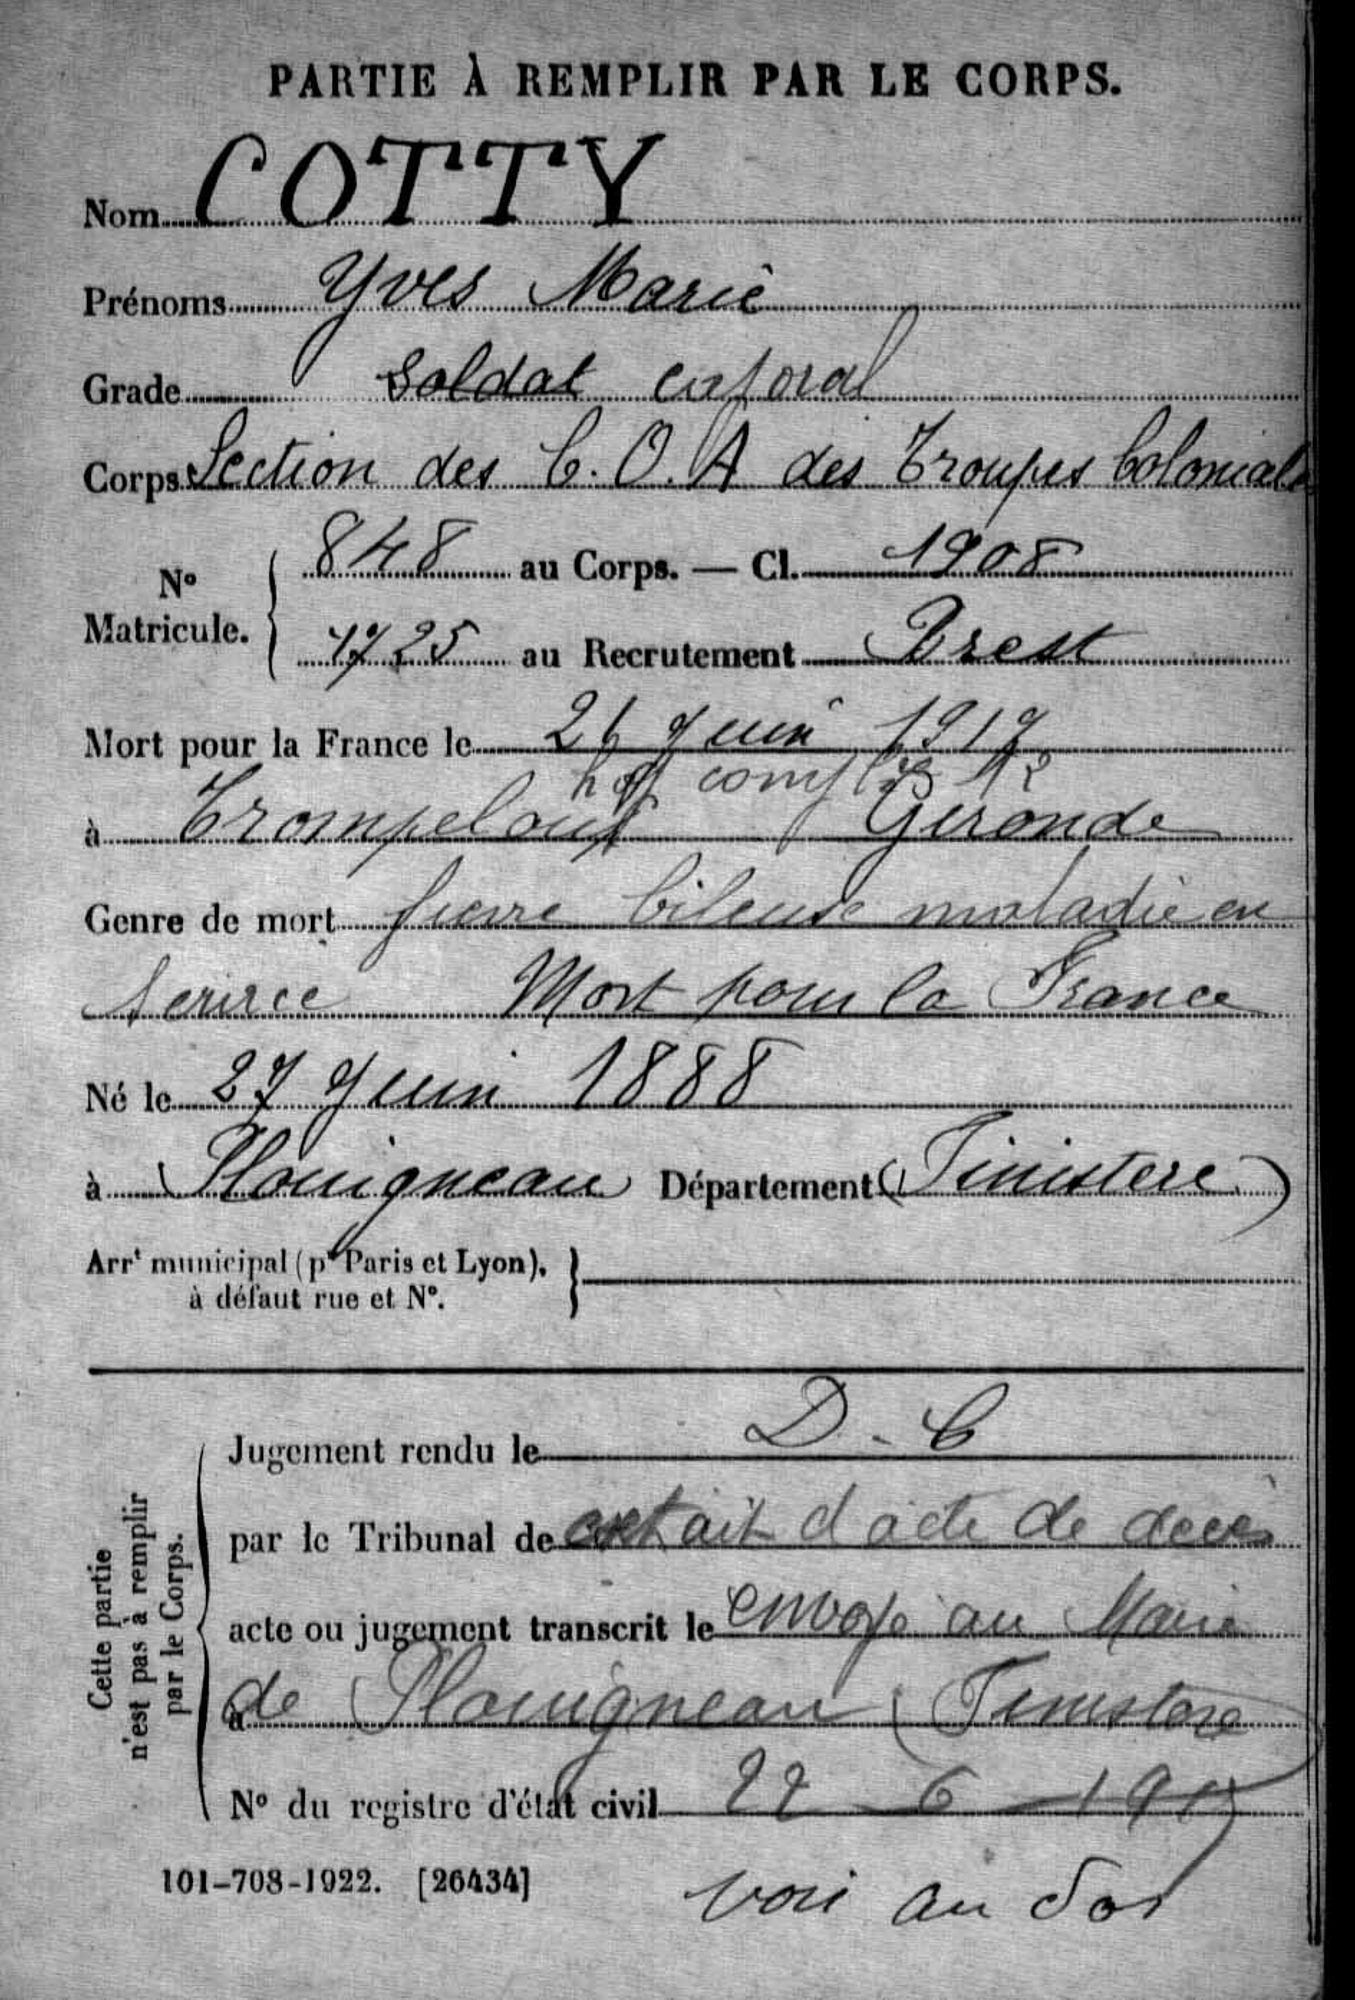 PARTIE À REMPLIR PAR LE CORPS.
Nom COTTY
Prénoms Yves Marie
Grade soldat caporal
Corps Section des C.O.A des Troupes Coloniales
N° Matricule. 848 au Corps. — Cl. 1908
1725 au Recrutement Brest
Mort pour la France le 21 Juin 1917
hop compl 12
à Trompeloup Gironde
Genre de mort fievre bileuse maladie en
service Mort pour la France
Né le 27 Juin 1888
à Plouigneau Département (Finistere)
Arrt municipal (pr Paris et Lyon),
à défaut rue et N°.
Cette partie
n'est pas à remplir
par le Corps.
Jugement rendu le D.C
par le Tribunal de extrait d acte de deces
acte ou jugement transcrit le envoyé au Maire
à de Plouigneau (Finistere)
N° du registre d'état civil 22 - 6 - 1917
101-708-1922. [26434]
voir au dos